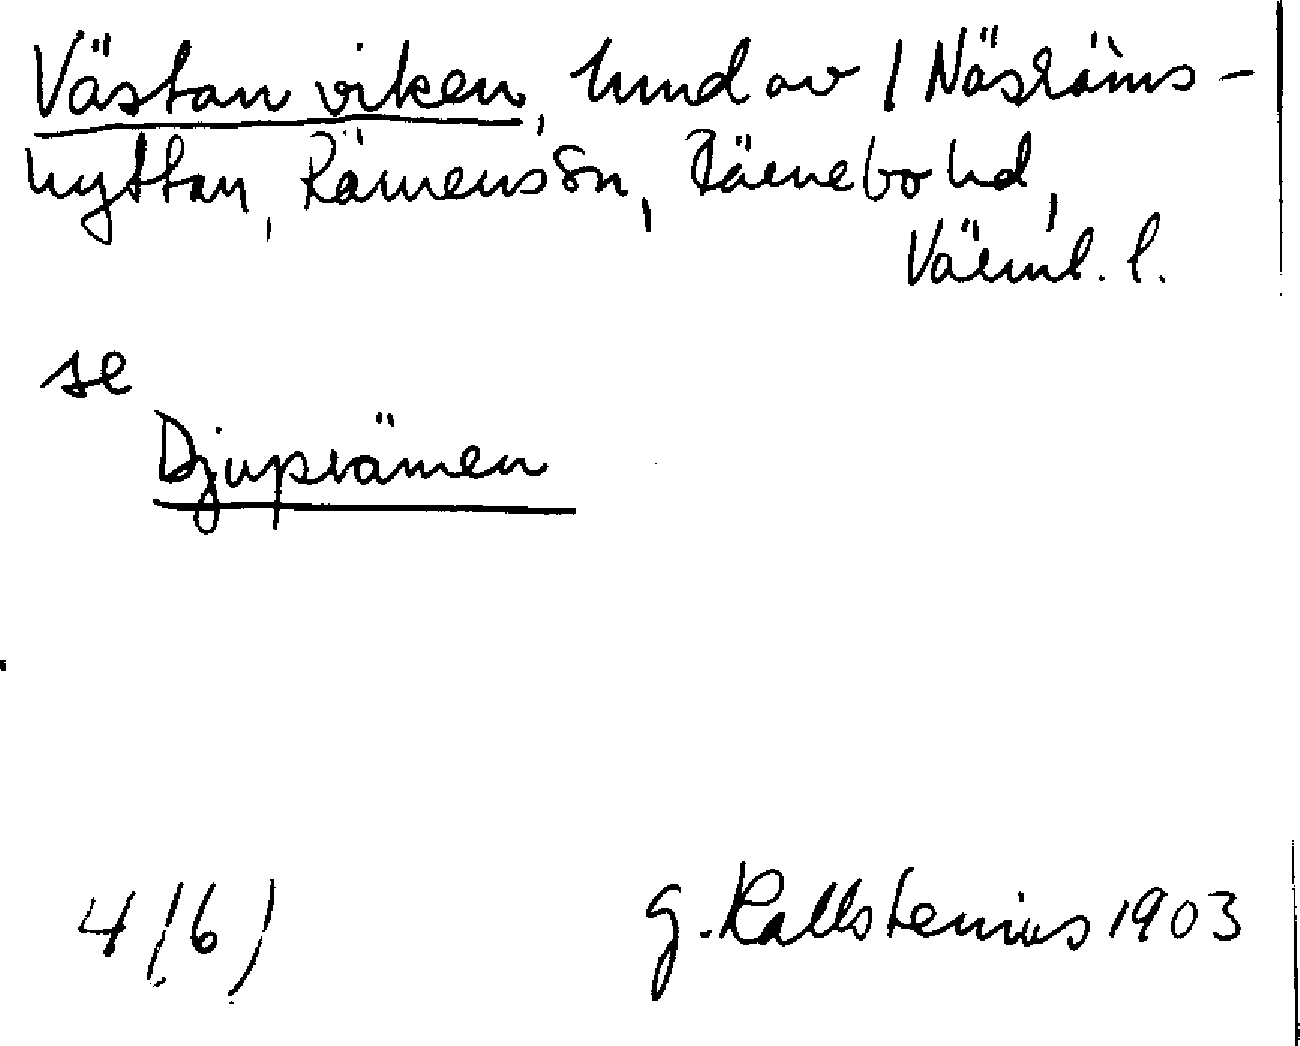 Västan viken, hemd av / Näsräms-
hyttan, Rämens sn, Färnebo hd,
Värml. l.
se
Djuprämen
4/6)
G. Kallstenius 1903